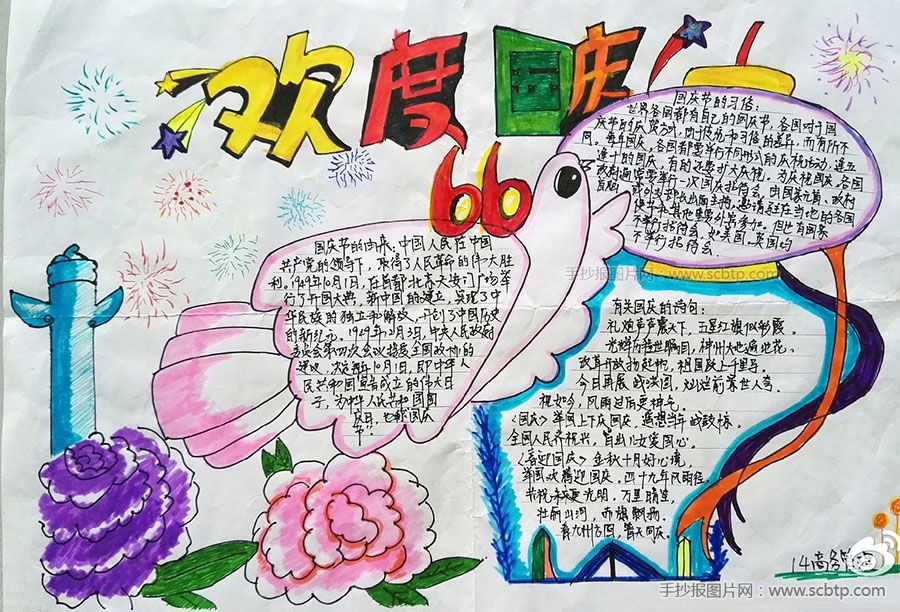 欢度国庆
66
国庆节的习俗：
世界各国都有自己的国庆节，各国对于国
庆节的庆祝方式，由于
习俗的差异，而有所不
同。每年国庆，各国都要举行不同形式的庆祝活动，
逢十的国庆，有的还要扩大庆祝。为庆祝国庆，各国
政府通常要举行一次国庆招待会，由国家元首、政府
出面主持，邀请驻在当地的各国
使节和其他重要外宾参加。但也有国家
不举行招待会，如美国、英国均
不举行招待会
手抄报图片网：www.scbtp.com
国庆节的由来：中国人民在中国
共产党的领导下，取得了人民革命的伟大胜
利。1949年10月1日，在首都北京天安门广场举
行了开国大典，新中国的建立，实现了中
华民族的独立和解放，开创了中国历史
的新纪元。1949年
月3日，中央人民政府
委员会第四次会议接受全国政协的
建议，
10月1日，即中华人
民共和国宣告成立的伟大日
子，为中华人民共和国国
庆日，也称国庆
节！
有关国庆的诗句：
礼炮声声震天下，五星红旗似彩霞。
光辉历程世瞩目，神州大地遍地花。
改革开放扬起帆，祖国跃上千里马。
今日再展战洪图，灿烂前景世人夸
视如今，风雨过后更神气。
《国庆》举国上下庆国庆，遥想当年战敌惊。
全国人民齐祝兴，
儿女爱国心。
《喜迎国庆》金秋十月好心境，
举国欢腾迎国庆。四十九年风雨程，
光明，万里晴空，
壮丽山河，
旗飘扬。
看九州方圆，普天同庆。
14商务
手抄报图片网：www.scbtp.com